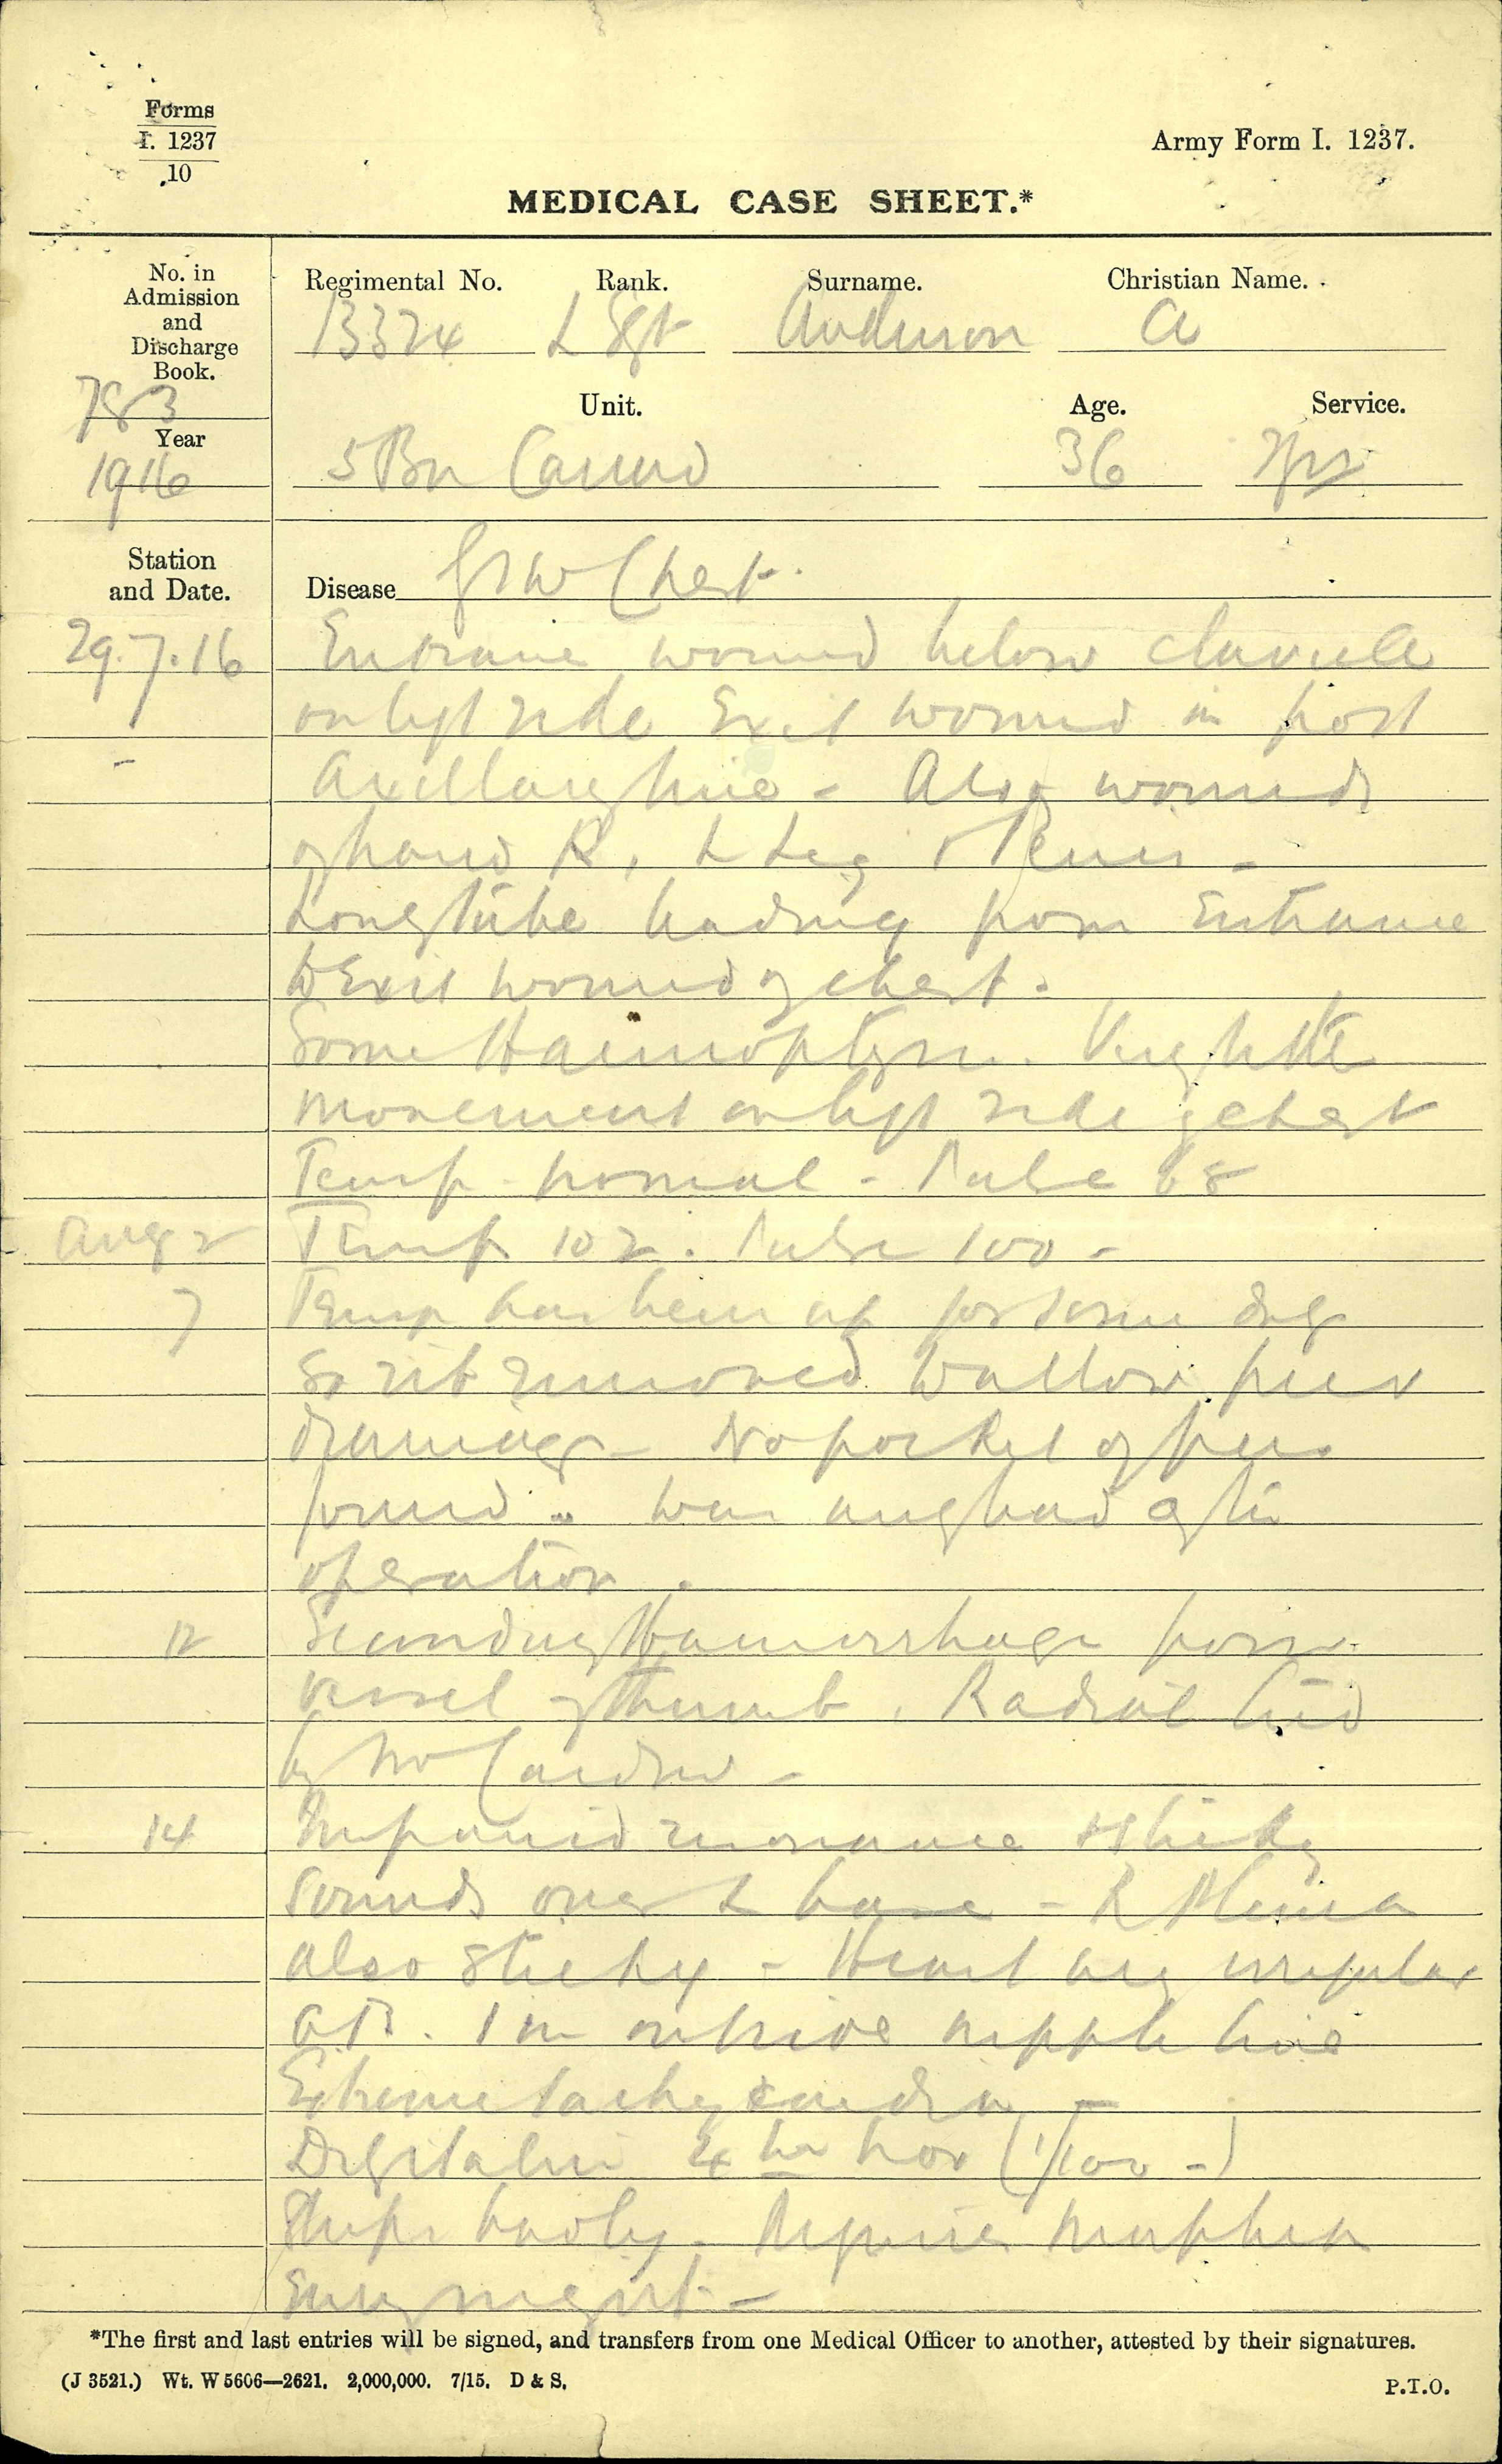 Forms
I. 1237
10
Army Form I. 1237.
MEDICAL CASE SHEET.*
No. in
Admission
and
Discharge
Book.
783
Year
1916
Regimental No. Rank. Surname. Christian Name.
13324 L Sgt Anderson A
Unit. Age. Service.
5 Bn 36
Station
and Date.
Disease GSW Chest.
29.7.16 Entrance wound below clavicle
on left side Exit wound in post
Axillary line - Also wounds
of hand R, L Leg & Penis -
Long tube leading from Entrance
to Exit wound of chest.
Some Haemoptysis. Very little
movement on left side of chest
Temp normal - Pulse 68
Aug 2 Temp 102. Pulse 100 -
7 Temp has been up for some days
So rib removed to allow free
drainage - No pocket of pus
found - was very bad after
operation.
12 Secondary Haemorrhage from
vessel of thumb. Radial tied
by Mr
14 Impaired resonance & sticky
sounds over L base - R Pleura
also sticky - Heart very irregular
A.B. 1 in outside nipple line
Extreme tachycardia -
Digitalin 4 hr (1/100 -)
Sleeps badly. Requires morphia
every night -
*The first and last entries will be signed, and transfers from one Medical Officer to another, attested by their signatures.
(J 3521.) Wt. W 5606—2621. 2,000,000. 7/15. D & S.
P.T.O.